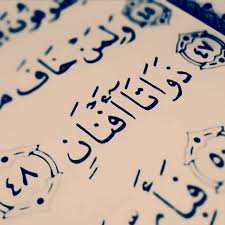 وَلِمَنْ خَافَ
٤٧ ذَوَاتَآ أَفْنَانٍ ٤٨
فَبِأَ